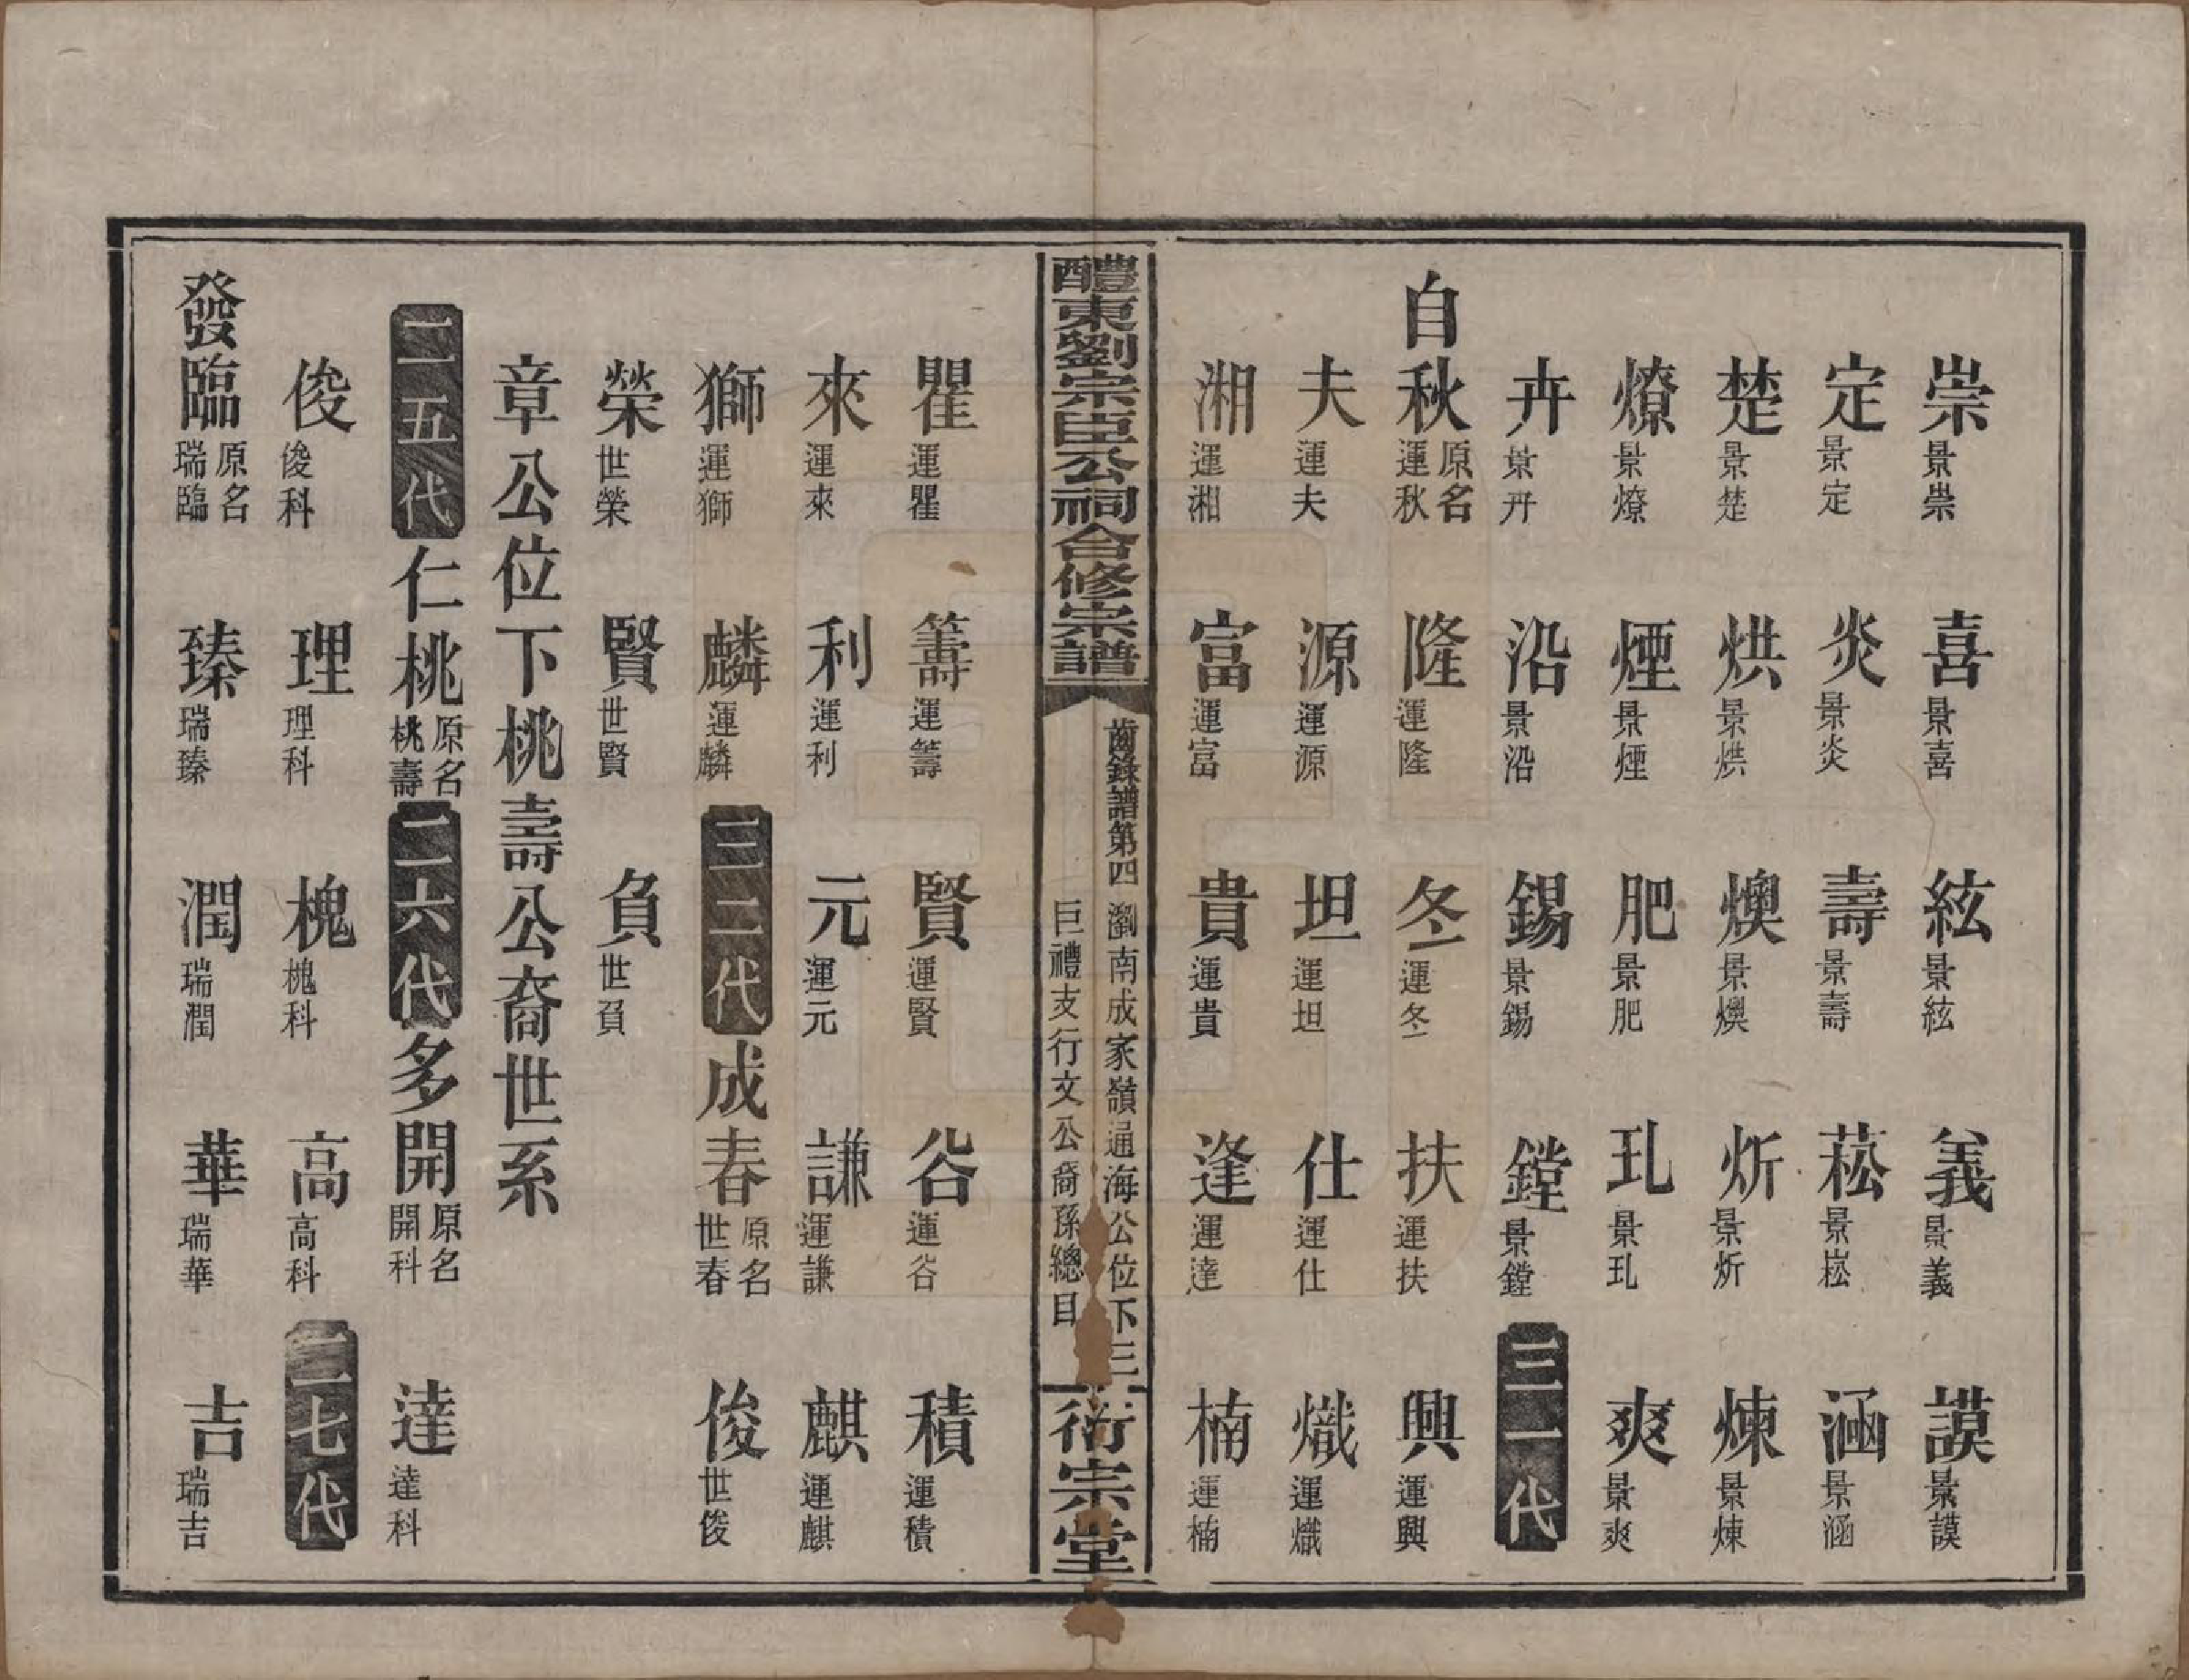 崇景崇 喜景喜 絃景絃 義景義 謨景謨
定景定 炎景炎 壽景壽 菘景崧 涵景涵
楚景楚 烘景烘 燠景燠 炘景炘 煉景煉
燎景燎 煙景煙 肥景肥 玌景玌 爽景爽
卉景卉 沿景沿 錫景錫 鏜景鏜 三一代
自秋原名運秋 隆運隆 冬運冬 扶運扶 興運興
夫運夫 源運源 坦運坦 仕運仕 熾運熾
湘運湘 富運富 貴運貴 逢運達 楠運楠
醴東劉宗臣公祠合修宗譜
齒錄譜第四 瀏南成家嶺通海公位下三
巨禮支行文公裔孫總目
衍宗堂
瞿運瞿 籌運籌 賢運賢 谷運谷 積運積
來運來 利運利 元運元 謙運謙 麒運麒
獅運獅 麟運麟 三二代 成春原名世春 俊世俊
榮世榮 賢世賢 負世負
章公位下桃壽公裔世系
二五代 仁桃原名桃壽 二六代 多開原名開科 達達科
俊俊科 理理科 槐槐科 高高科 二七代
發臨原名瑞臨 臻瑞臻 潤瑞潤 華瑞華 吉瑞吉